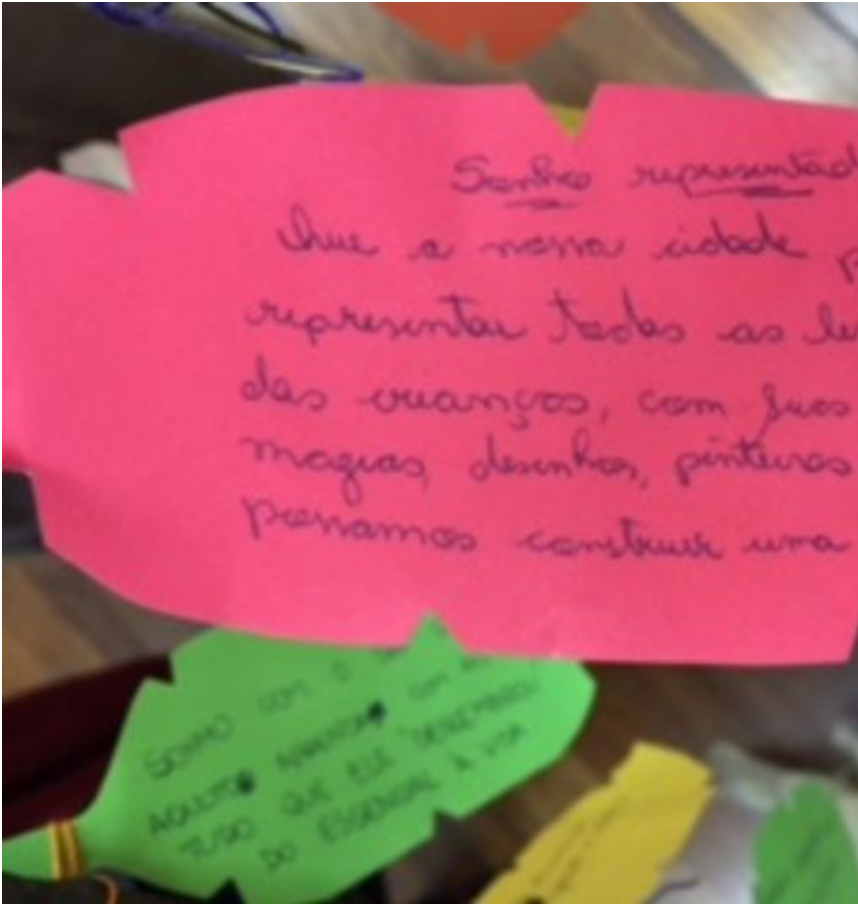 Sonho representad
Que a nossa cidade p
representar todas as
das crianças, com suas
magias, desenhos, pinturas
possamos construir uma
SONHO COM O
ADULTO APRENDA COM
TUDO QUE ELE DESLEMBROU
DO ESSENCIAL À VIDA